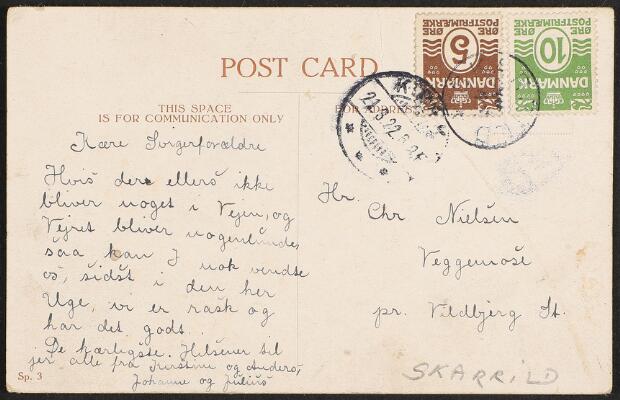 POST CARD
THIS SPACE
IS FOR COMMUNICATION ONLY
FOR ADDRESS
Kære Svigerforældre
Hvis dere ellers ikke
bliver noget i Vejen, og
Vejret bliver nogenlunde,
saa kan I nok vendte
os, sidst i den her
Uge, vi er rask og
har det godt.
De kærligste Hilsener til
jer alle fra Kirstine og Anders,
Johanne og Julius
Sp. 3
5
ØRE ØRE
POSTFRIMÆRKE
DANMARK
10
ØRE ØRE
POSTFRIMÆRKE
DANMARK
Hr.
Chr Nielsen
Veggemose
pr. Vildbjerg St.
SKARRILD